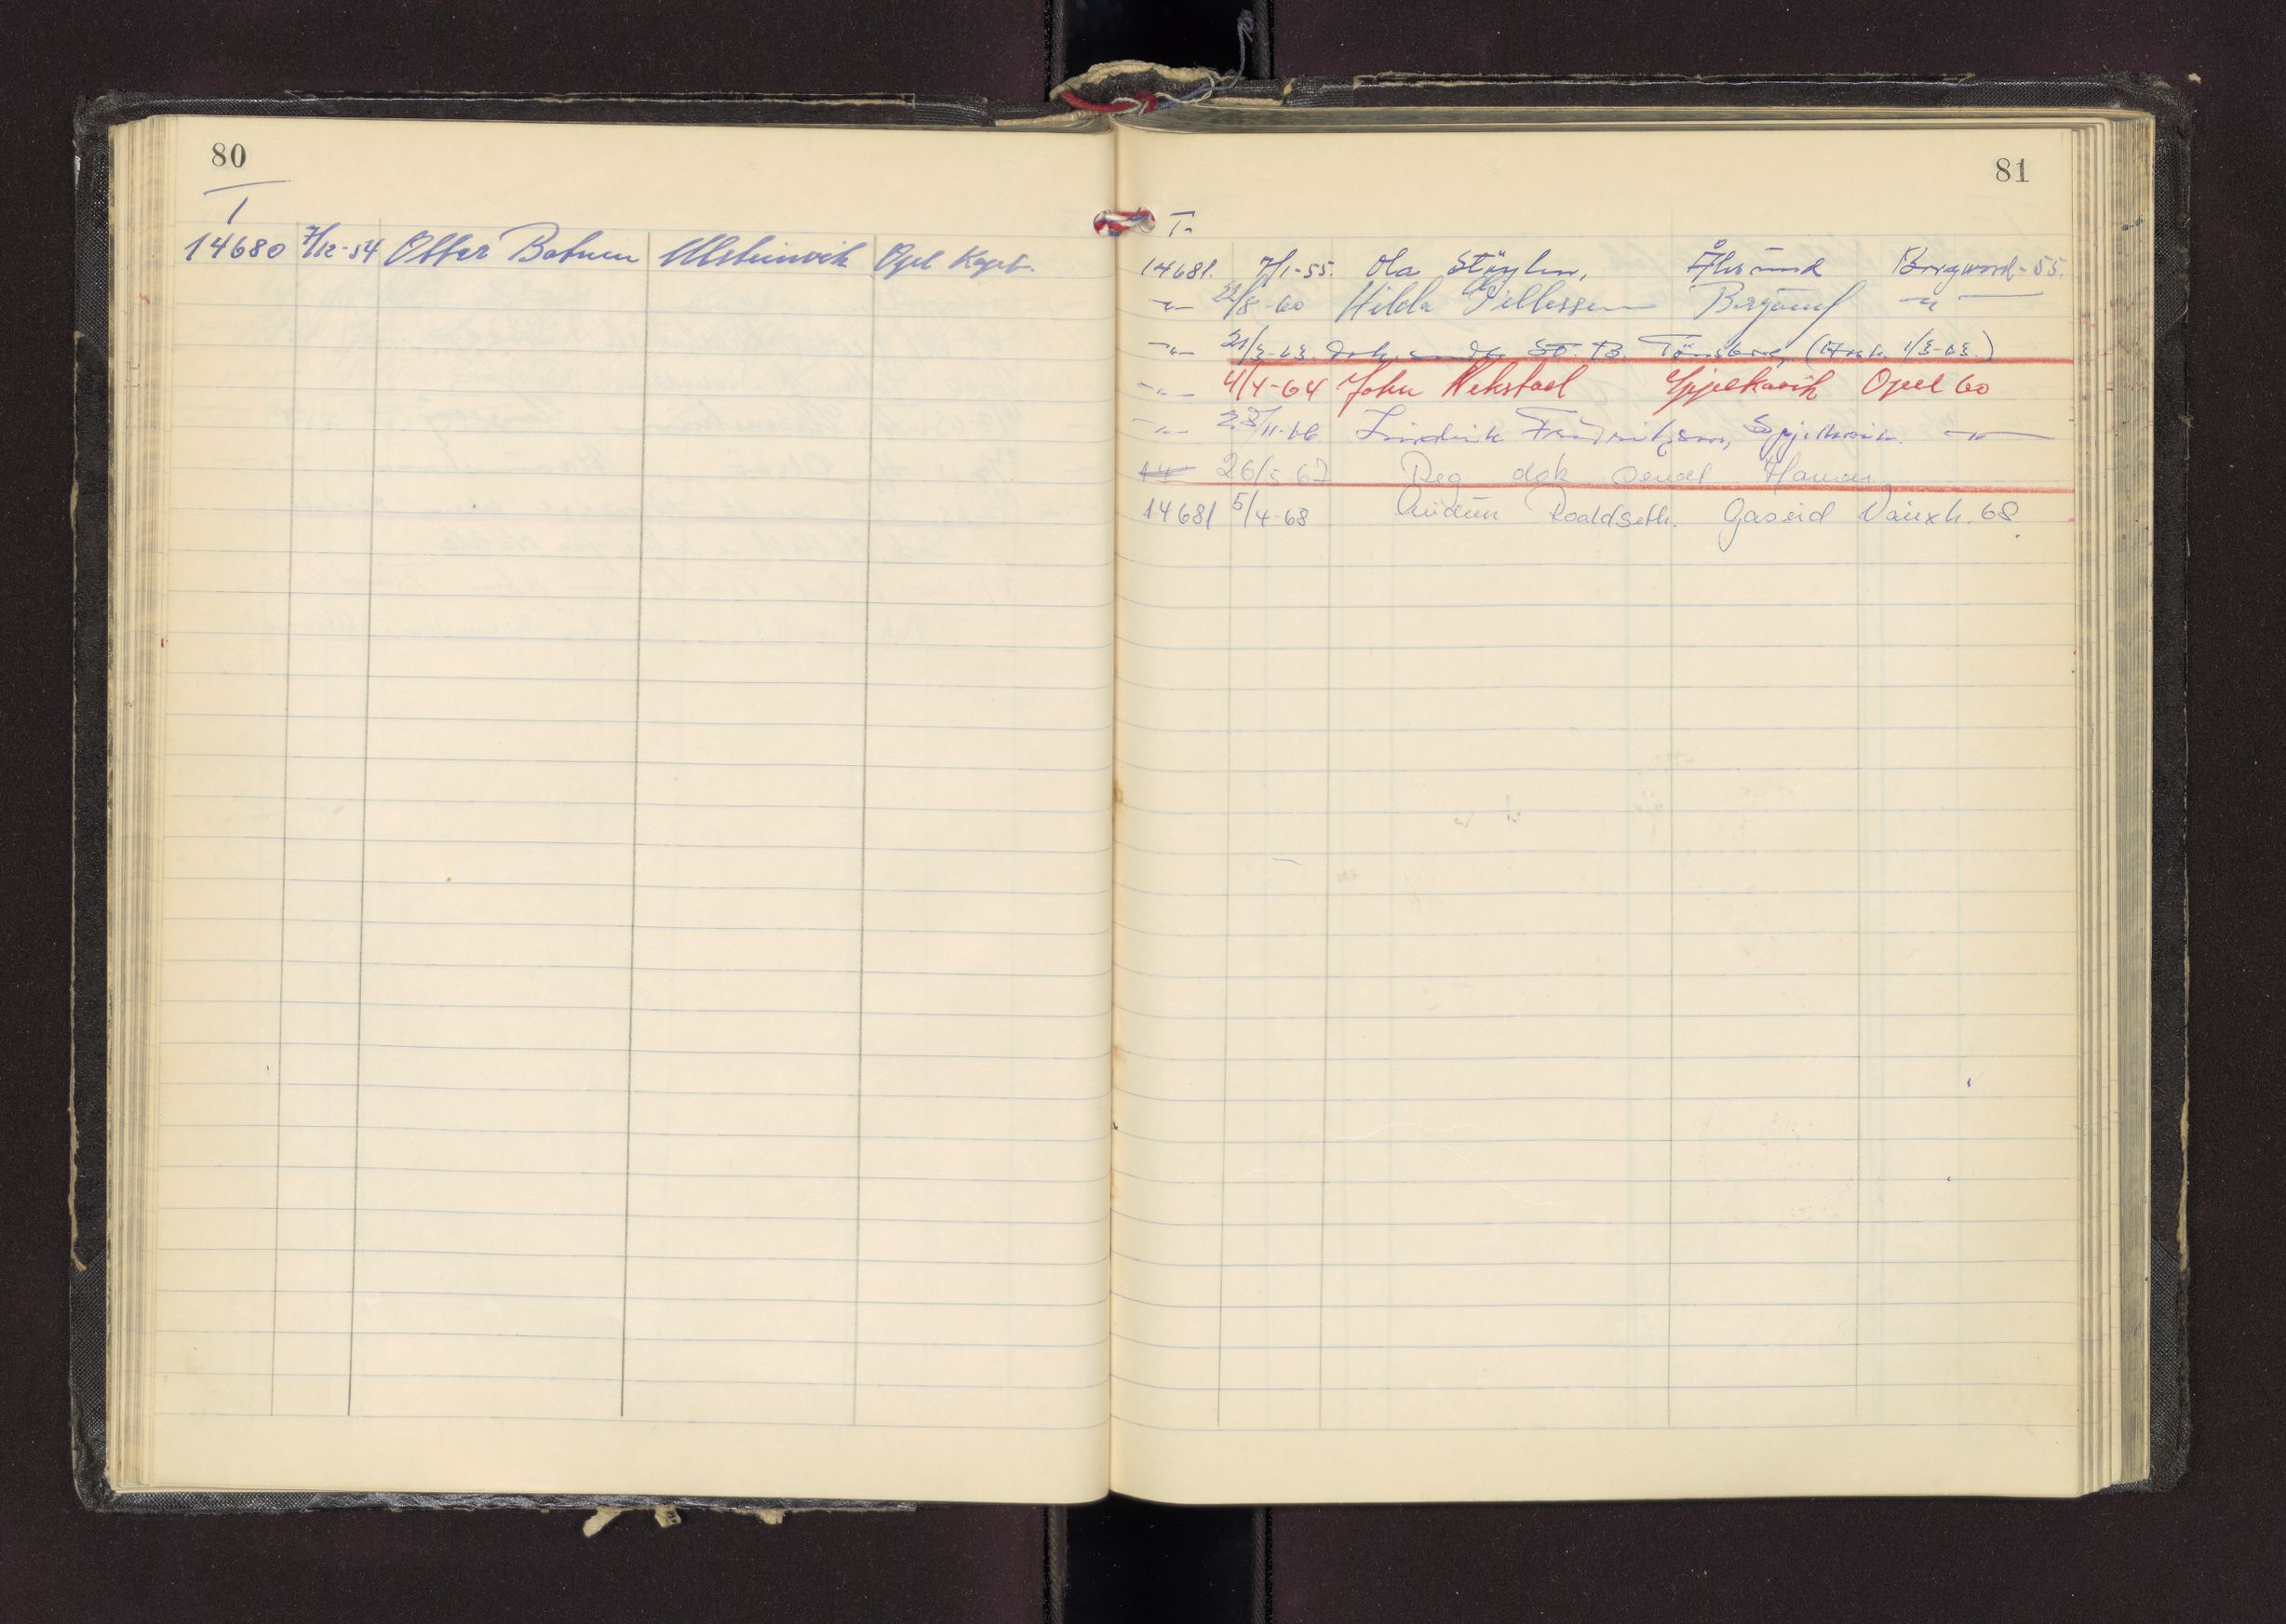 80
T
14680 7/12-54 Otter Botnen Ulsteinvik Opel Kapt.
81
T.
14681. 7/1-55. Ola Støylen, Ålesund Borgward-55.
-"- 22/8-60 Hilda Pillessen -"-
-"- 21/3-63. dok. sendt St. B. Tönsberg (Avsk. 1/3-63.)
-"- 4/4-64 John Wekstad Spjelkavik Opel 60
-"- 23/11-66 Fredriksen, Spjelkavik. -"-
14 26/5 67 Reg dok sendt Hamar
14681 5/4-68 Audun Roaldseth. Gåseid Vauxh. 68